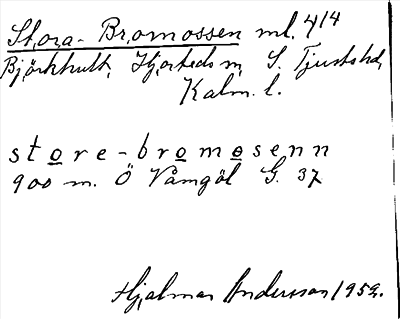 Stora-Bromossen ml. 4/4
Björkhult, Hjorteds sn, S. Tjusts hd,
Kalm. l.
store-bromosenn
900 m. Ö Våmgöl G. 37
Hjalmar Andersson 1952.